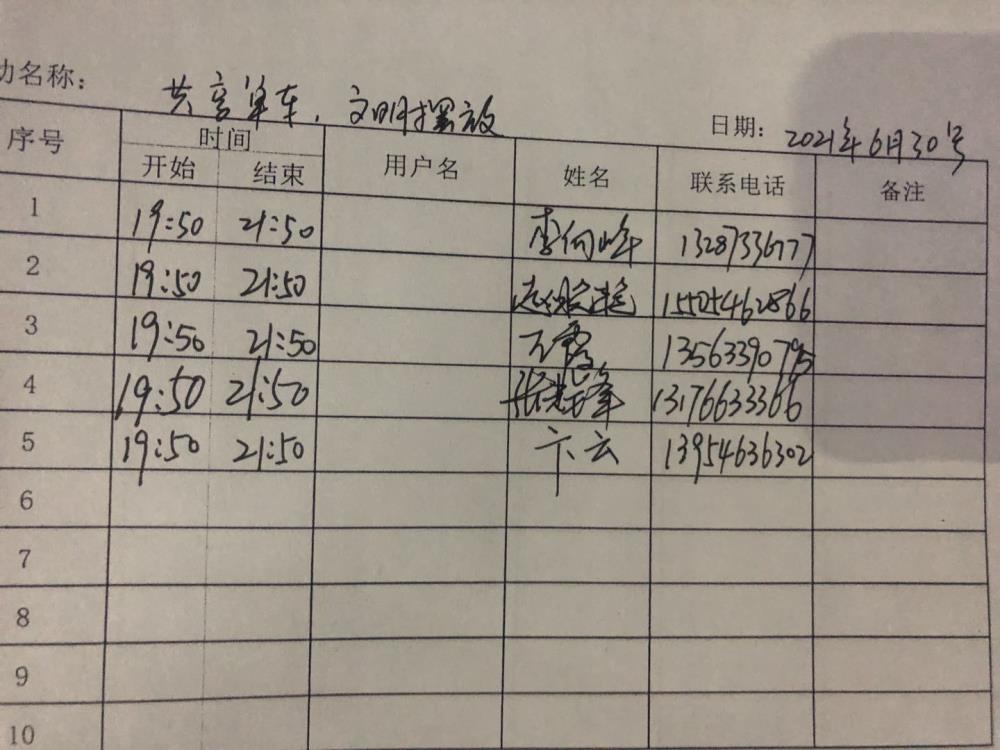 动名称： 共享单车，文明摆放
日期： 2021年6月30号
序号 时间 用户名 姓名 联系电话 备注
开始 结束
1 19:50 21:50 李向峰 13287336777
2 19:50 21:50 15505462866
3 19:50 21:50 王霞 13563390795
4 19:50 21:50 13176633366
5 19:50 21:50 卞云 13954636302
6
7
8
9
10